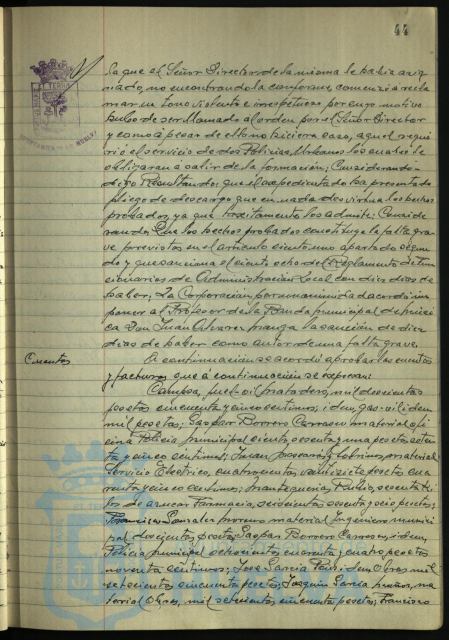 44
la que el Señor Director de la misma le había asig
nado, no encontrandola conforme, comenzó a recla
mar en tono violento e irrespetuoso por cuyo motivo
hubo de ser llamado al orden por el Señor Director
y como á pesar de ello no hiciera caso, aquel requi
rió el servicio de dos Policias Urbanos los cuales le
obligaron a salir de la formación; Considerando-
digo Resultando: que el expedientado ha presentado
pliego de descargo que en nada desvirtua los hechos
probados, ya que tacitamente los admite; Conside
rando: Que los hechos probados constituye la falta gra
ve previstos en el articulo ciento uno apartado segun
do y que sanciona el ciento ocho del Reglamento de Fun
cionarios de Administración Local con diez dias de
haber; La Corporación por unanimidad acordó im
poner al Profesor de la Banda municipal de músi
ca Don Juan Alvarez la sanción de diez
dias de haber como autor de una falta grave.
Cuentas
A continuación se acordó aprobar las cuentas
y facturas que á continuación se expresan:
Campsa, fuel-oil matadero, mil doscientas
pesetas cincuenta y cinco centimos; idem, gas-oil idem
mil pesetas; Gaspar Borrero Carrasco material ofi
cina Policia municipal ciento sesenta y una pesetas seten
ta y cinco centimos; Juan y Sobrinos, material
Servicio Electrico, cuatrocientas veintisiete pesetas cua
renta y cinco centimos; Mantequerias Rubio, sesenta ki
los de azucar Farmacia, seiscientas sesenta y seis pesetas;
Francisco Gonzalez Moreno material Ingeniero munici
pal doscientas pesetas; Gaspar Borrero Carrasco, idem,
Policia municipal ochocientas cuarenta y cuatro pesetas
noventa centimos; José Garcia idem Obras mil
setecientas cincuenta pesetas; Joaquin Garcia ma
terial Obras, mil setecientas cincuenta pesetas; Francisco